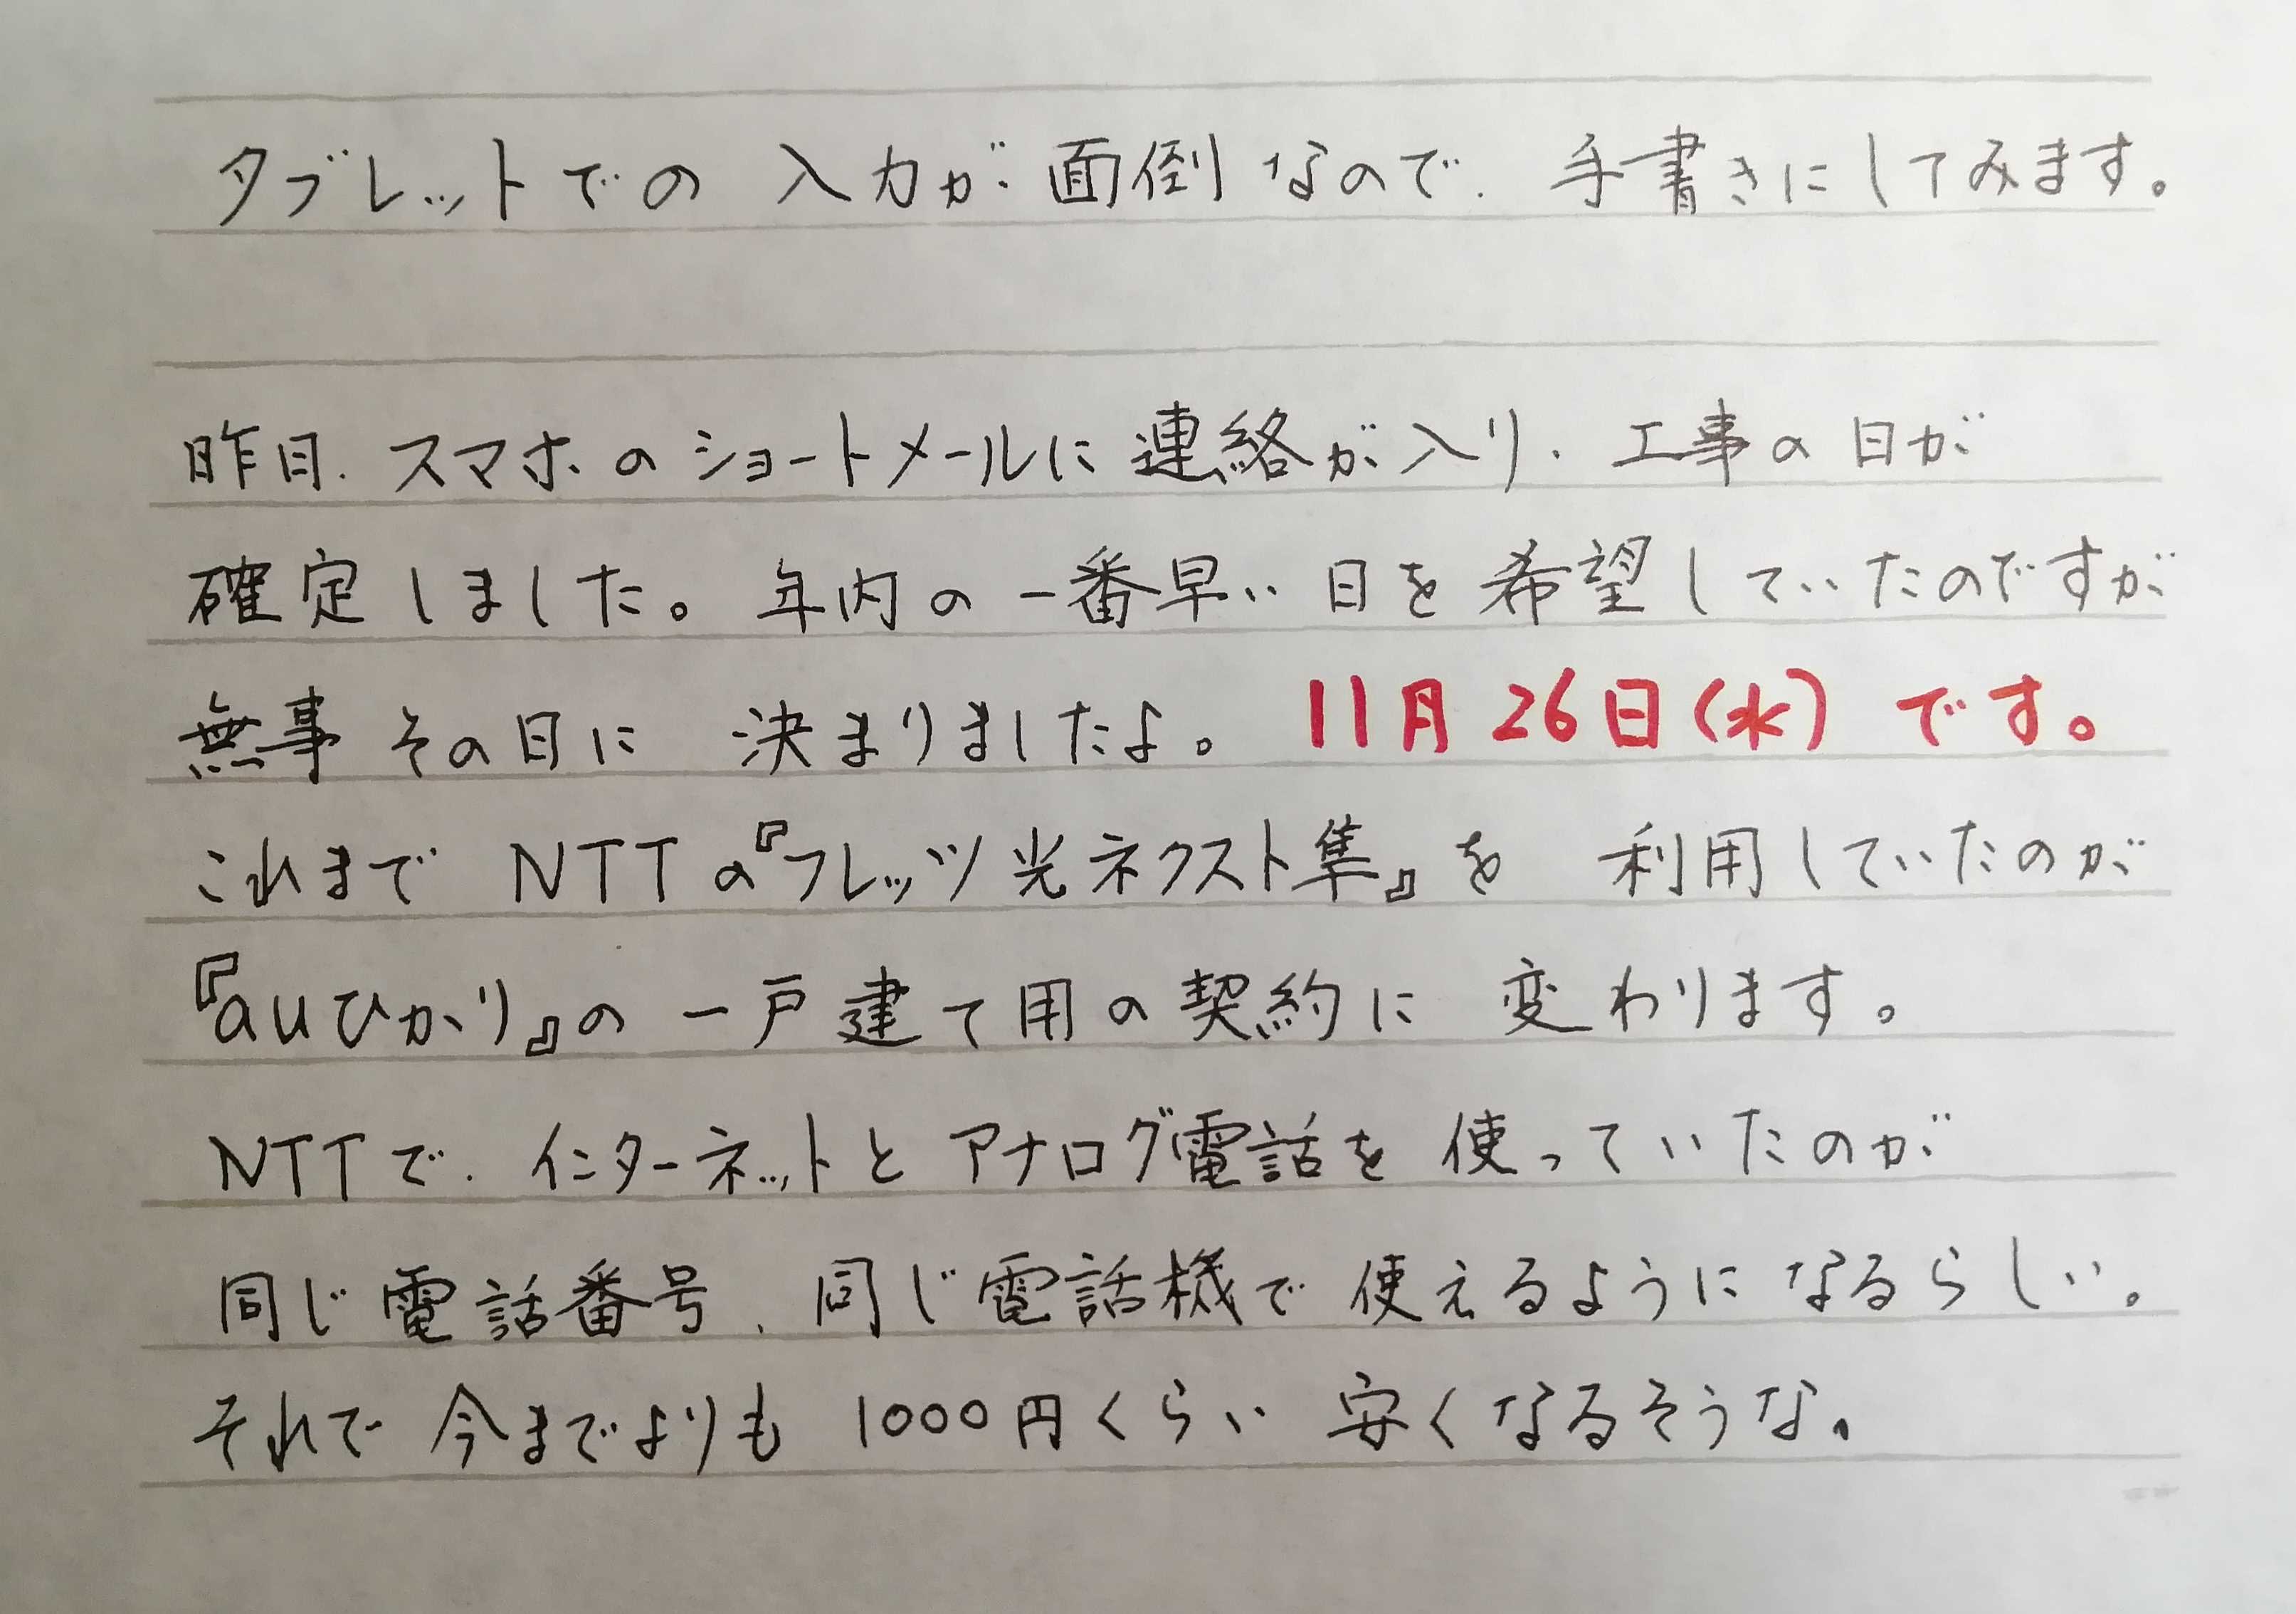 タブレットでの入力が面倒なので、手書きにしてみます。
昨日、スマホのショートメールに連絡が入り、工事の日が
確定しました。年内の一番早い日を希望していたのですが
無事その日に決まりましたよ。11月26日(水)です。
これまでNTTの『フレッツ光ネクスト隼』を利用していたのが
『auひかり』の一戸建て用の契約に変わります。
NTTで、インターネットとアナログ電話を使っていたのが
同じ電話番号、同じ電話機で使えるようになるらしい。
それで今までよりも1000円くらい安くなるそうな。